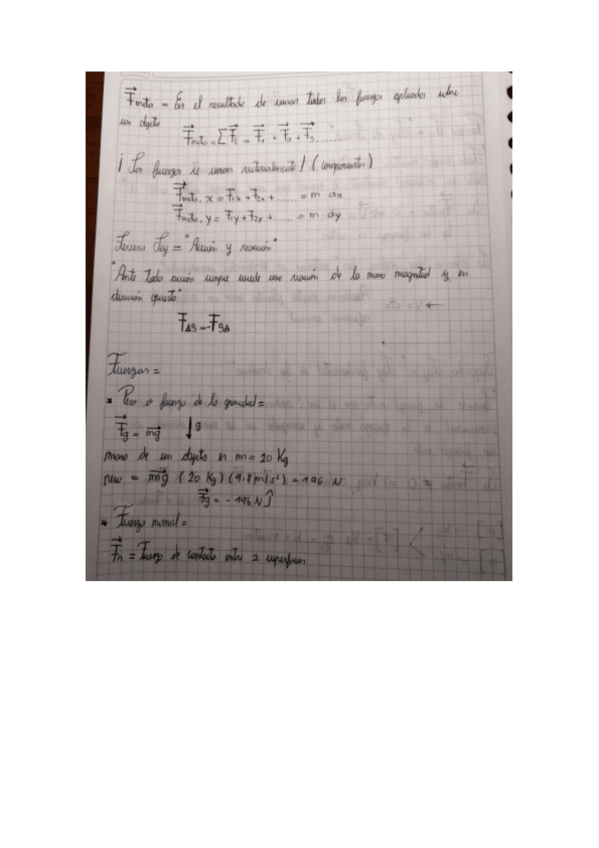 F⃗neta = Es el resultado de sumar todas las fuerzas aplicadas sobre
un objeto
F⃗neta = ∑F⃗i = F⃗1 + F⃗2 + F⃗3 ......
¡ Las fuerzas se suman vectorialmente ! (componentes)
F⃗neta, x = F1x + F2x + ...... = m ax
F⃗neta, y = F1y + F2y + .... = m ay
Tercera Ley = "Acción y reacción"
"Ante toda acción siempre sucede una reacción de la misma magnitud y en
dirección opuesta"
FAB = -FBA
Fuerzas =
* Peso o fuerza de la gravedad =
F⃗g = m g⃗ ↓g
masa de un objeto es m = 20 Kg
peso = m g⃗ (20 Kg) (9,8 m/s²) = 196 N
F⃗g = - 196 N ĵ
* Fuerza normal =
F⃗n = Fuerza de contacto entre 2 superficies